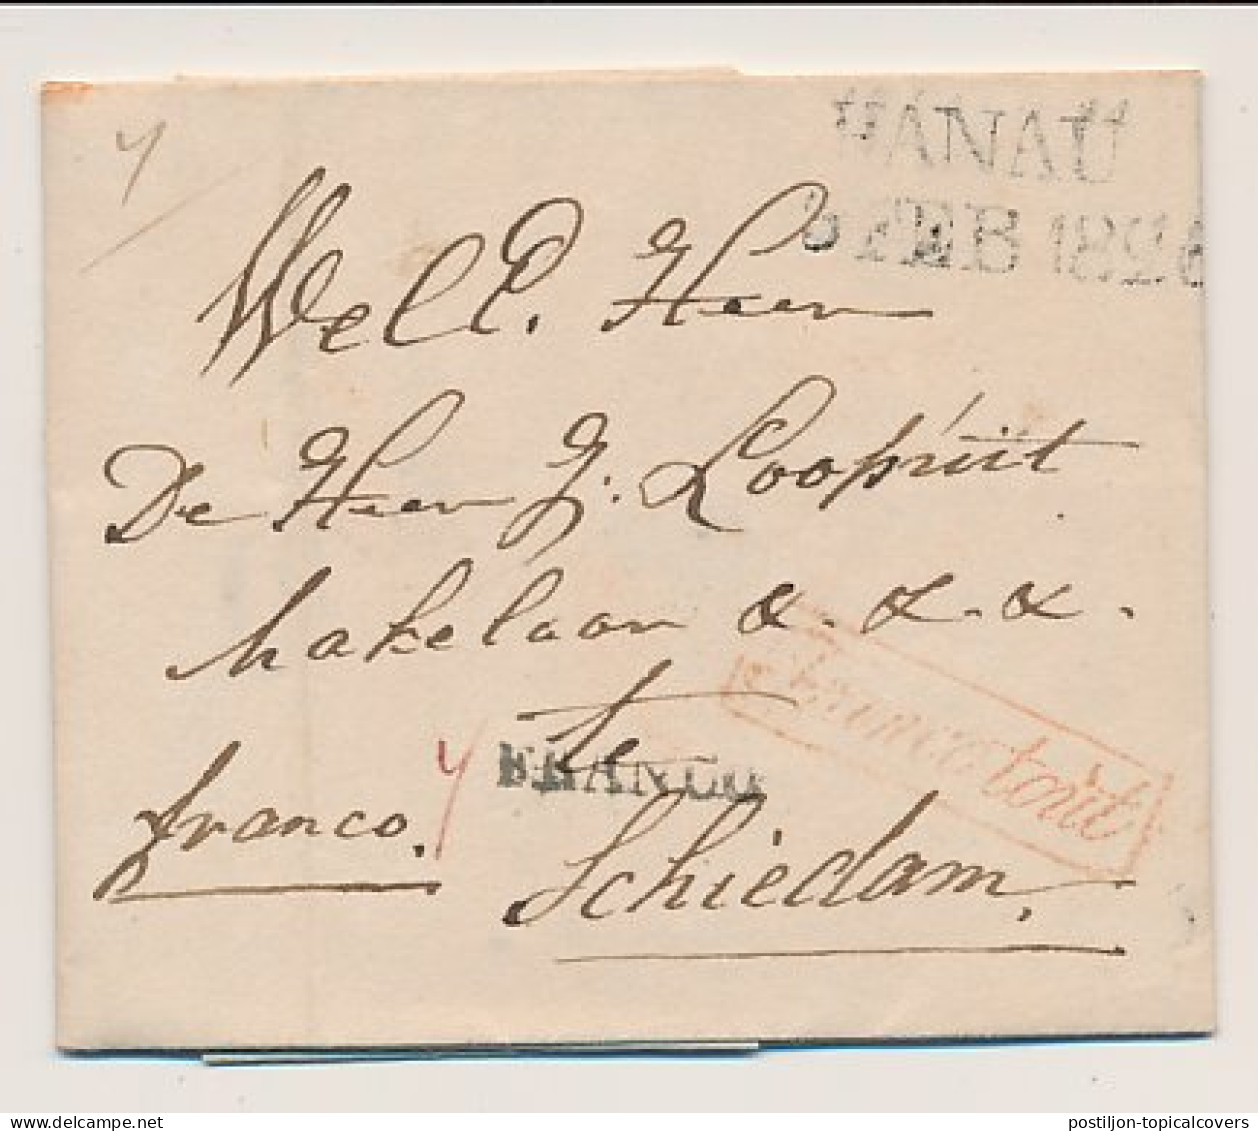 HANAU
FEB 182
Well. Heer
De Heer J. Loopuit
Makelaar &. &. &.
te
FRANCO
franco.
Schiedam.
franco tout
delcampe.net
postiljon-topicalcovers